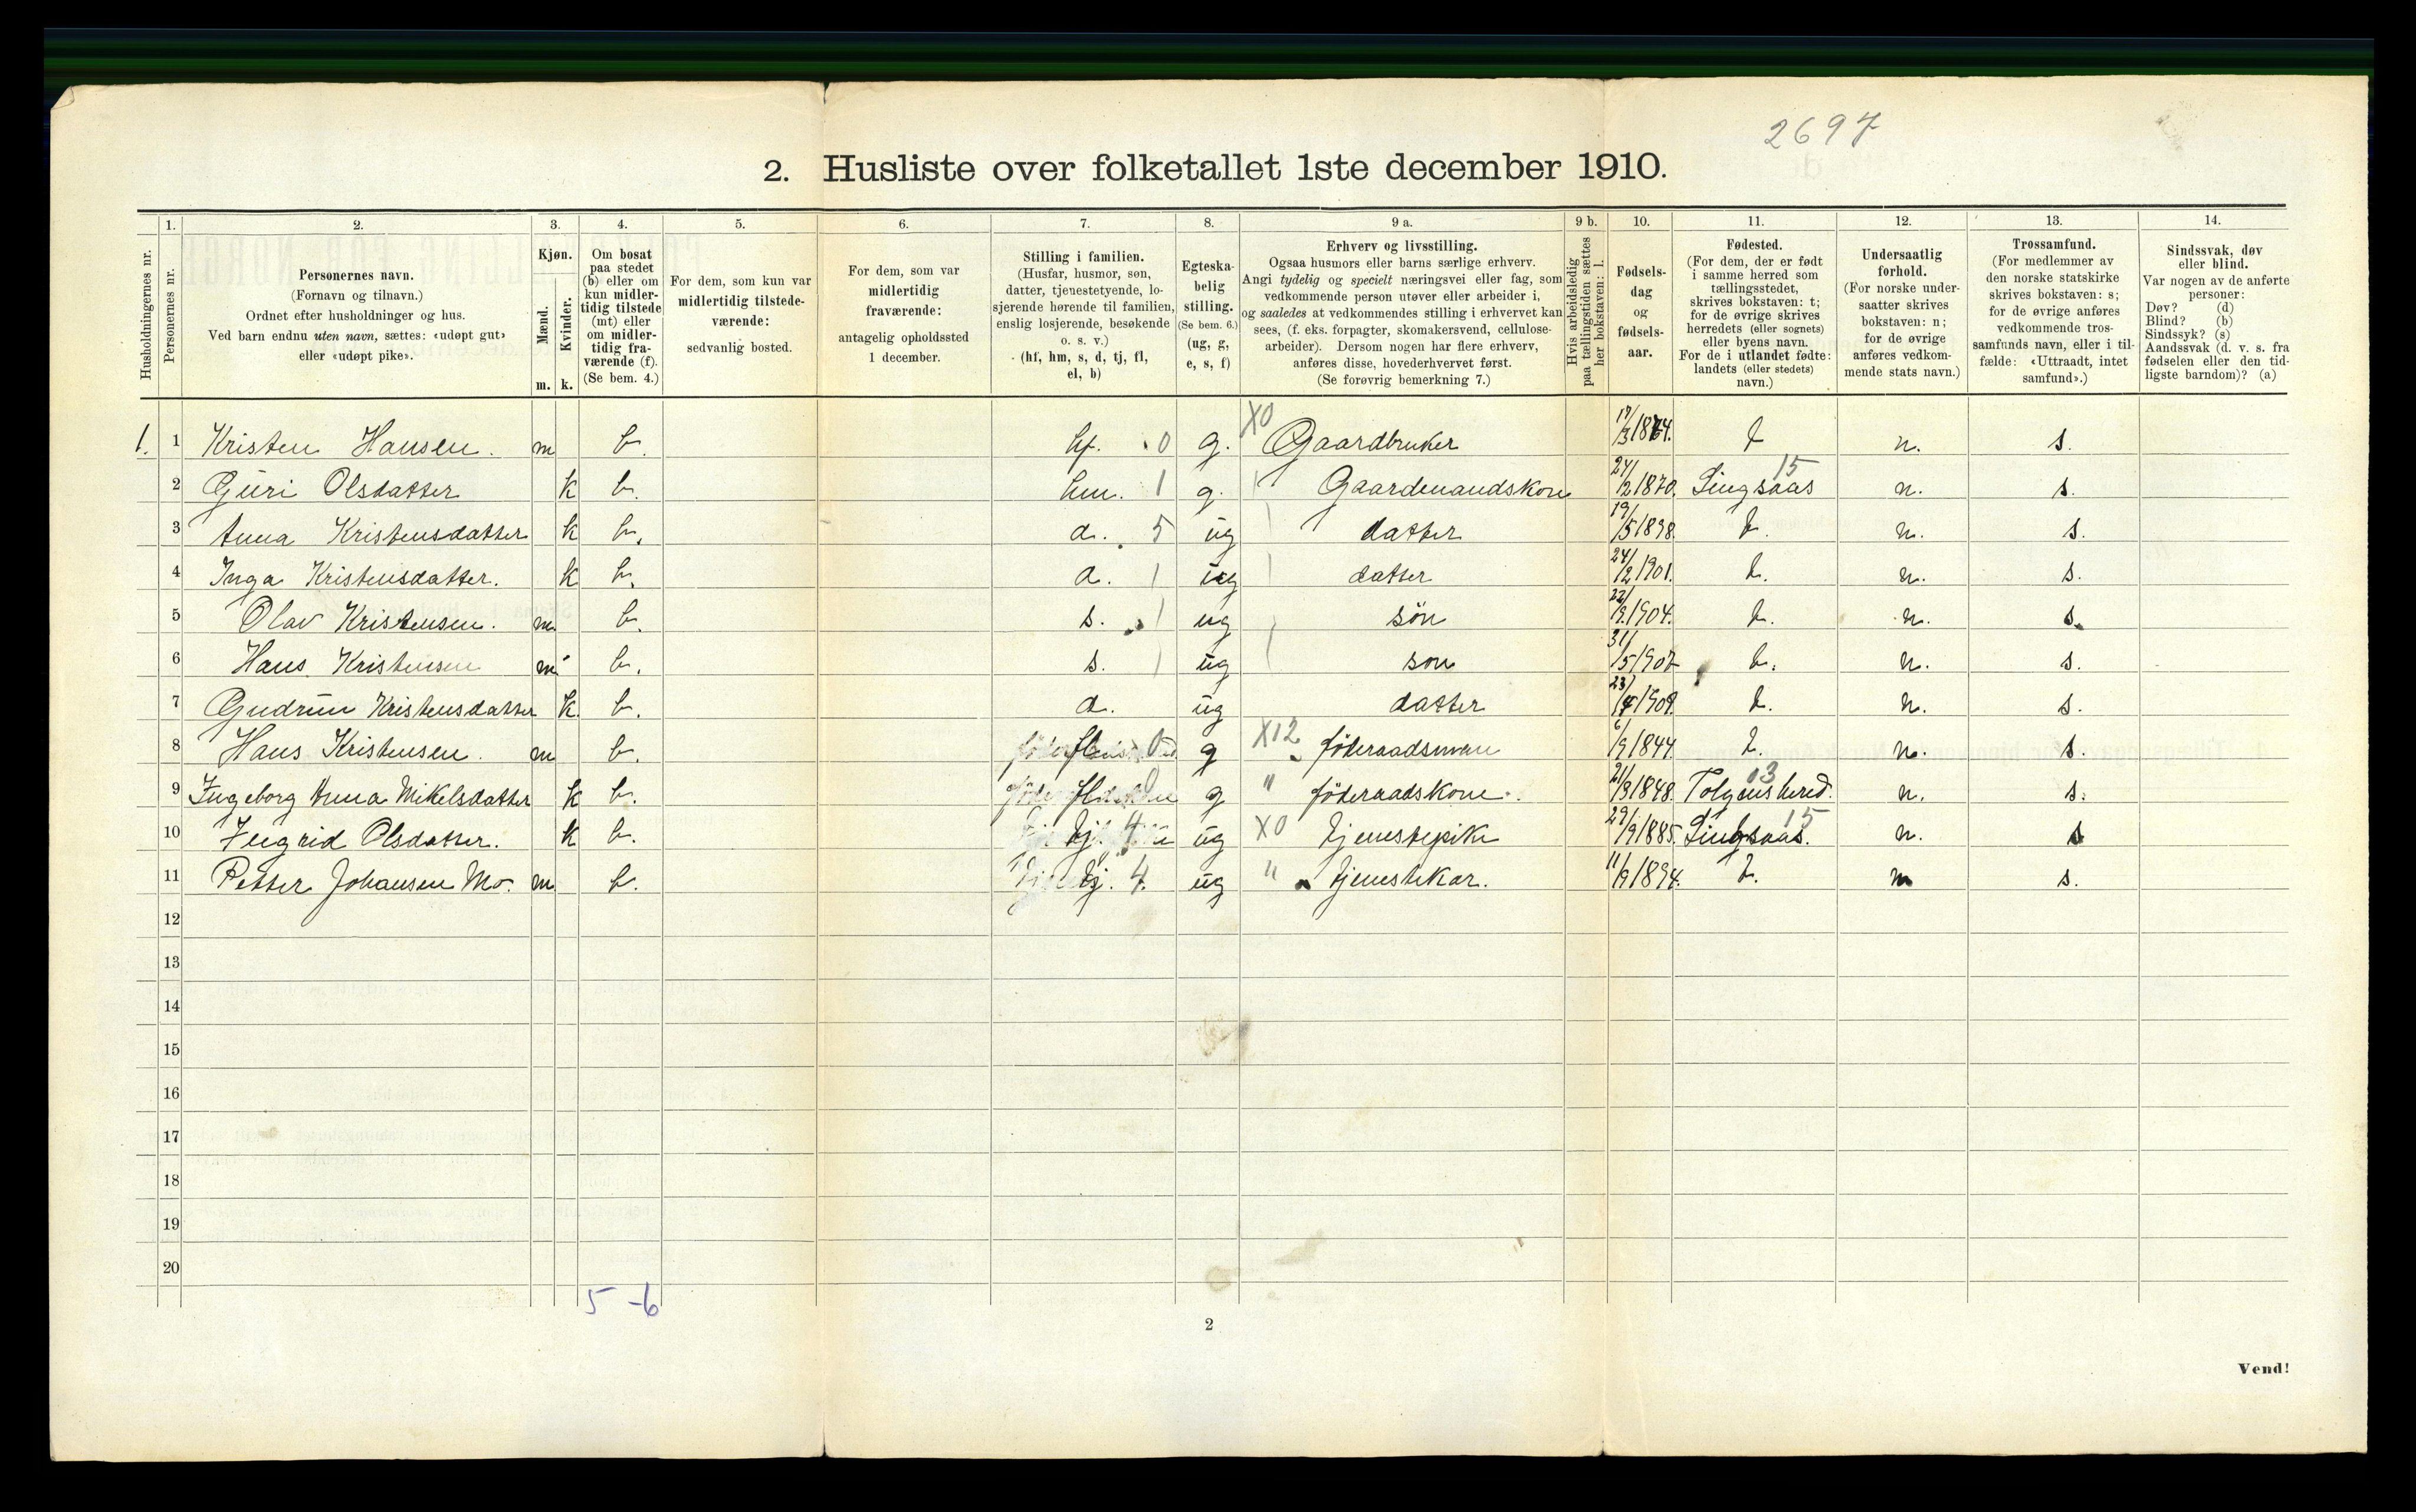 2697
2. Husliste over folketallet 1ste december 1910.
Husholdningernes nr.
1.
Personernes nr.
2.
Personernes navn.
(Fornavn og tilnavn.)
Ordnet efter husholdninger og hus.
Ved barn endnu uten navn, sættes: «udøpt gut»
eller «udøpt pike».
3.
Kjøn.
Mænd.
Kvinder.
m. k.
4.
Om bosat
paa stedet
(b) eller om
kun midler-
tidig tilstede
(mt) eller
om midler-
tidig fra-
værende (f).
(Se bem. 4.)
5.
For dem, som kun var
midlertidig tilstede-
værende:
sedvanlig bosted.
6.
For dem, som var
midlertidig
fraværende:
antagelig opholdssted
1 december.
7.
Stilling i familien.
(Husfar, husmor, søn,
datter, tjenestetyende, lo-
sjerende hørende til familien,
enslig losjerende, besøkende
o. s. v.)
(hf, hm, s, d, tj, fl,
el, b)
8.
Egteska-
belig
stilling.
(Se bem. 6.)
(ug, g,
e, s, f)
9 a.
Erhverv og livsstilling.
Ogsaa husmors eller barns særlige erhverv.
Angi tydelig og specielt næringsvei eller fag, som
vedkommende person utøver eller arbeider i,
og saaledes at vedkommendes stilling i erhvervet kan
sees, (f. eks. forpagter, skomakersvend, cellulose-
arbeider). Dersom nogen har flere erhverv,
anføres disse, hovederhvervet først.
(Se forøvrig bemerkning 7.)
9 b.
Hvis arbeidsledig
paa tællingstiden sættes
her bokstaven: l.
10.
Fødsels-
dag
og
fødsels-
aar.
11.
Fødested.
(For dem, der er født
i samme herred som
tællingsstedet,
skrives bokstaven: t;
for de øvrige skrives
herredets (eller sognets)
eller byens navn.
For de i utlandet fødte:
landets (eller stedets)
navn.)
12.
Undersaatlig
forhold.
(For norske under-
saatter skrives
bokstaven: n;
for de øvrige
anføres vedkom-
mende stats navn.)
13.
Trossamfund.
(For medlemmer av
den norske statskirke
skrives bokstaven: s;
for de øvrige anføres
vedkommende tros-
samfunds navn, eller i til-
fælde: «Uttraadt, intet
samfund».)
14.
Sindssvak, døv
eller blind.
Var nogen av de anførte
personer:
Døv? (d)
Blind? (b)
Sindssyk? (s)
Aandssvak (d. v. s. fra
fødselen eller den tid-
ligste barndom)? (a)
1. 1 Kristen Hansen. m b. hf. 0 g. X0 Gaardbruker 17/3 1874. t n. s.
2 Guri Olsdatter k b. hm. 1 g. Gaardmandskone 24/2 1870. Singsaas 15 n. s.
3 Anna Kristensdatter k b. d. 5 ug datter 19/5 1898. t. n. s.
4 Inga Kristensdatter. k b. d. 1 ug datter 24/2 1901. t. n. s.
5 Olav Kristensen. m b. s. 1 ug søn 22/9 1904. t. n. s.
6 Hans Kristensen m b. s. 1 ug søn 31/5 1907 t. n. s.
7 Gudrun Kristensdatter k. b. d. ug datter 23/4 1909. t. n. s.
8 Hans Kristensen. m b. fl 0 g X12 føderaadsman 6/9 1844. t. n. s.
9 Ingeborg Anna Mikelsdatter k b. fl 0 g " føderaadskone. 21/3 1848. Tolgens herred. 03 n. s.
10 Ingrid Olsdatter. k b. tj. 4 ug X0 tjenestepike 29/9 1885. Singsaas. 15 n. s
11 Petter Johansen Mo. m b. tj. 4. ug " tjenestekar. 11/9 1894. t. n s.
12
13
14
15
16
17
18
19
20
5 - 6
2
Vend!